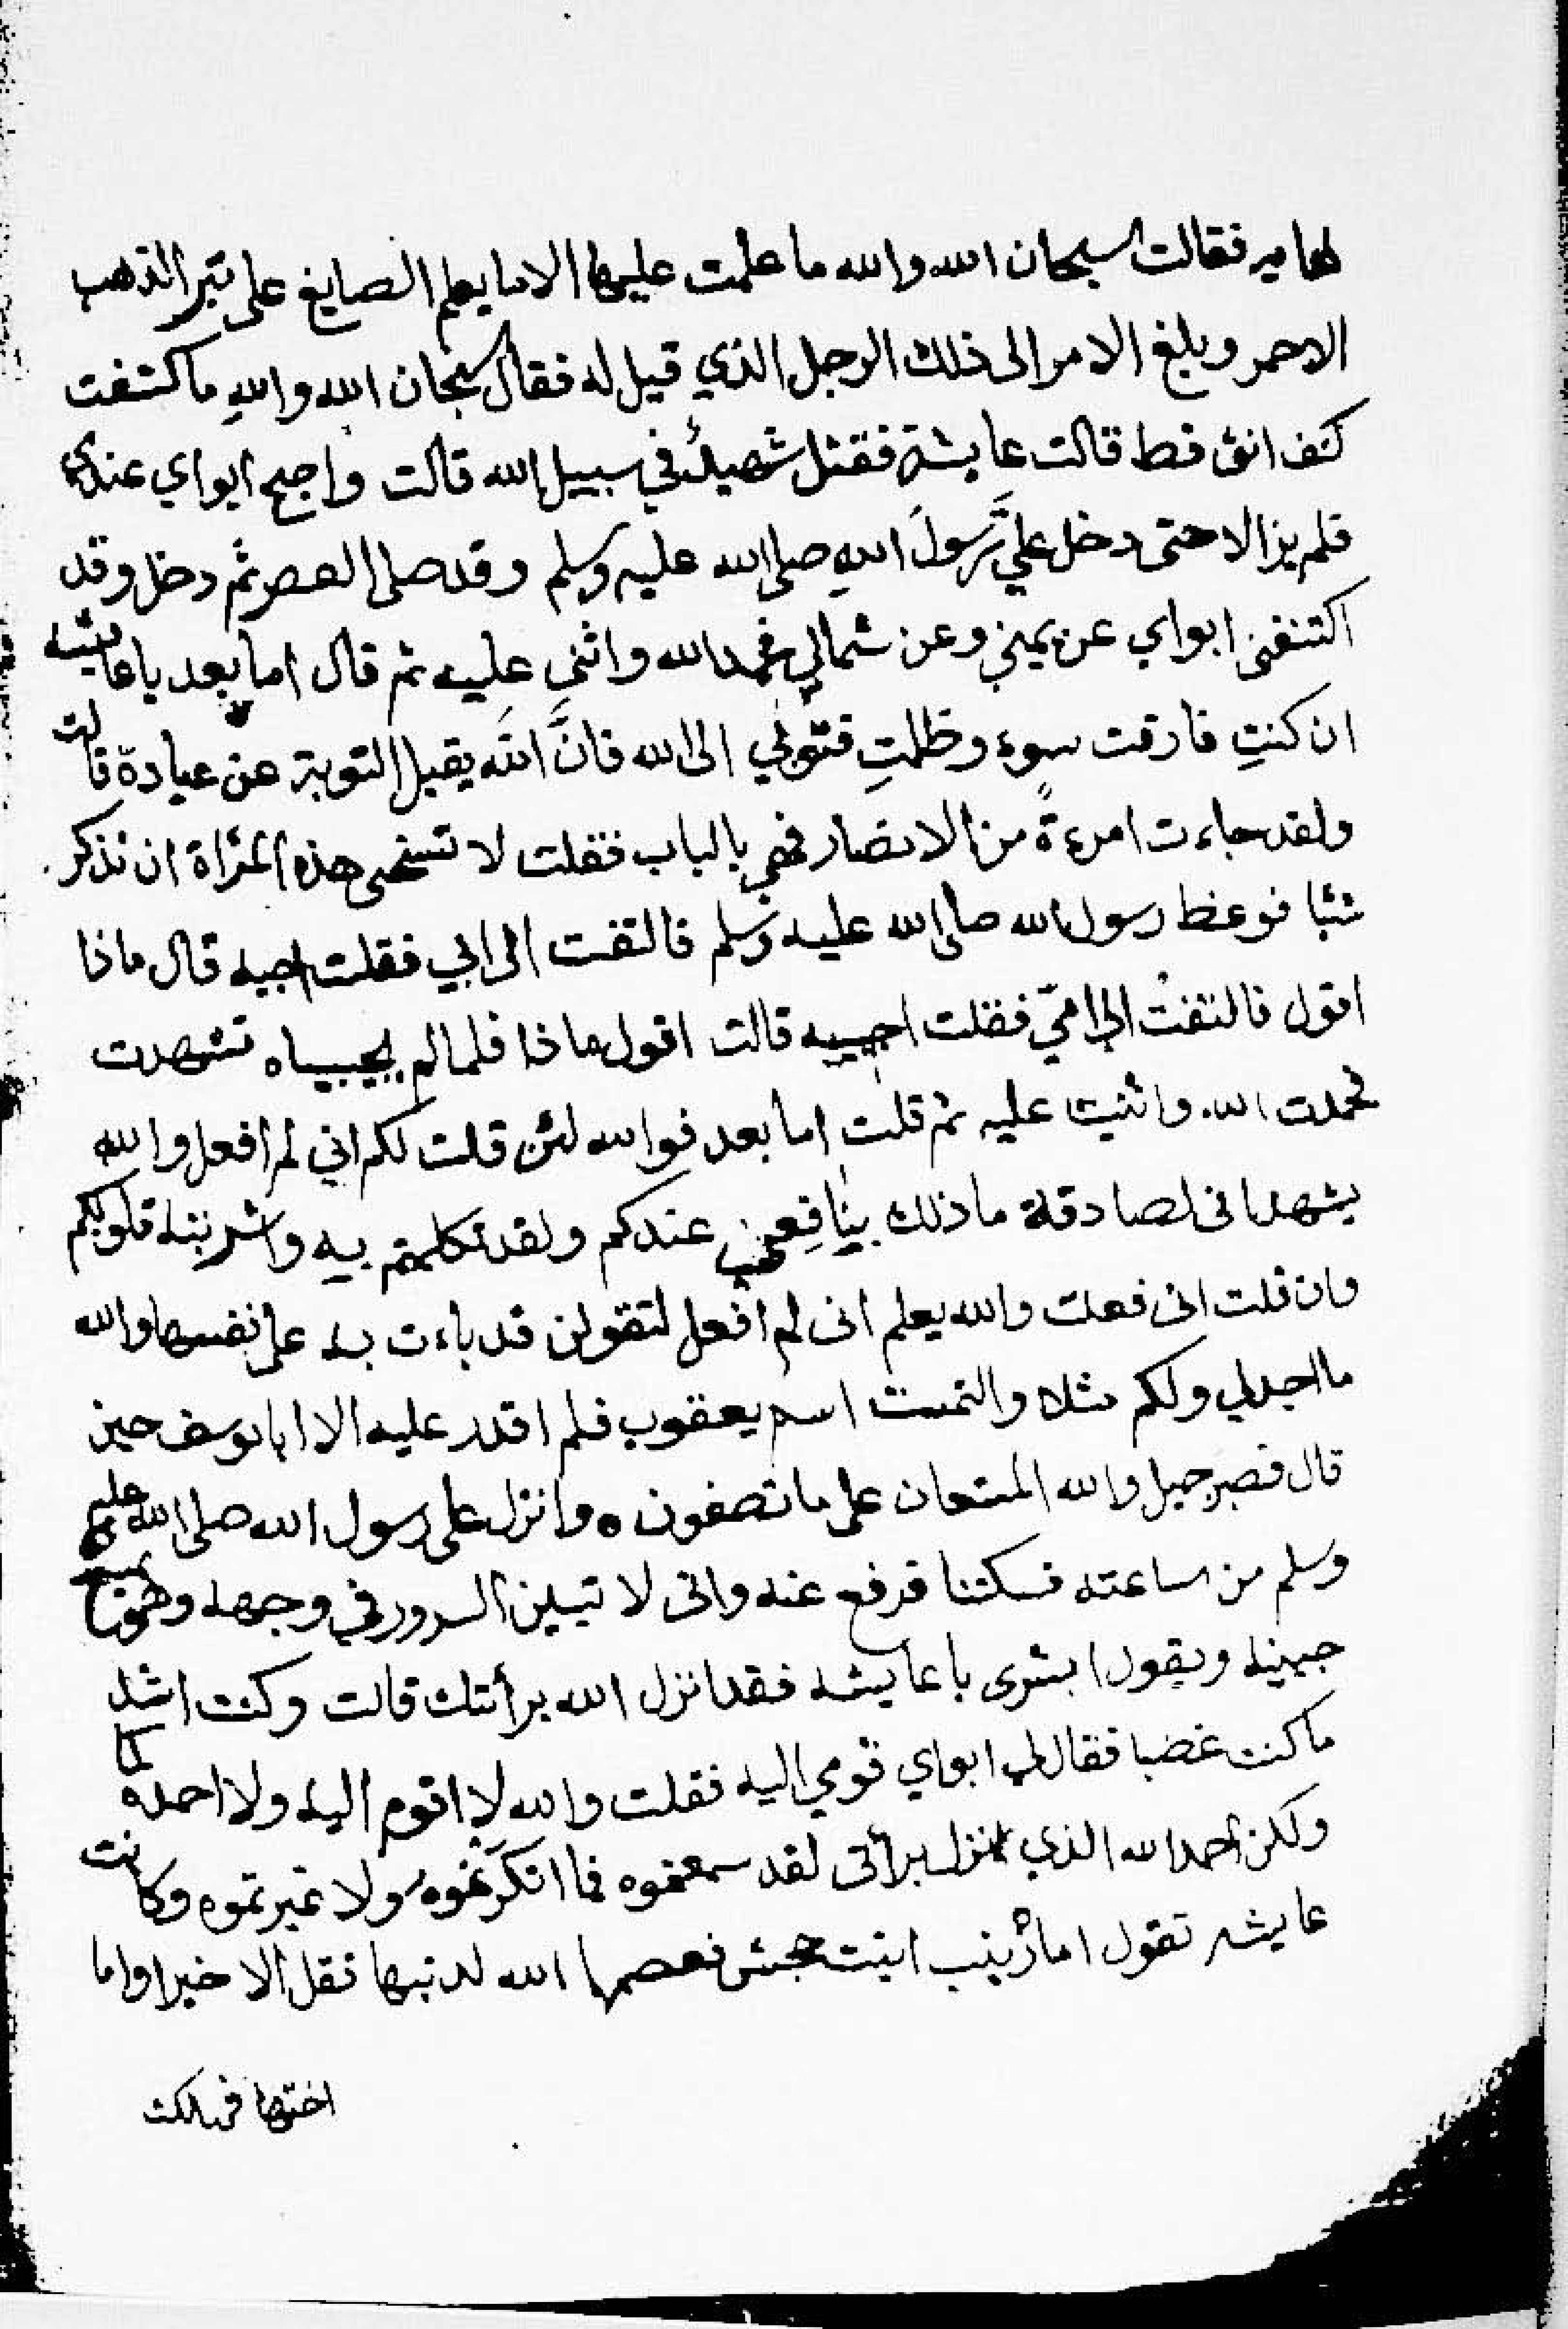 لها به فقالت سبحان الله والله ما علمت عليها الا ما يعلم الصايغ على تبر الذهب
الاحمر وبلغ الامر الى ذلك الرجل الذي قيل له فقال سبحان الله والله ما كشفت
كنف انثى قط قالت عايشة فقتل شهيدًا في سبيل الله قالت واصبح ابواي عندي
فلم يزالا حتى دخل عليَّ رسولَ الله صلى الله عليه وسلم وقد صلى العصر ثم دخل وقد
اكتنفنى ابواي عن يميني وعن شمالي فحمد الله واثنى عليه ثم قال اما بعد يا عايشه
ان كنتِ فارقت سوءٍ وظلمتِ فتوبي الى الله فانَّ اللَه يقبل التوبة عن عبادة قالت
ولقد جاءت امرءةً من الانصار فهي بالباب فقلت لا تستحى هذه المرأة ان تذكر
شئيا فوعظ رسول الله صلى الله عليه وسلم فالتفت الى ابي فقلت اجبه قال ماذا
اقول فالتفتْ الى اميّ فقلت اجيبيه قالت اقول ماذا فلما لم يجيباه تشهدت
فحمدت الله واثنيت عليه ثم قلت اما بعد فوالله لئن قلت لكم اني لم افعل والله
يشهد انى لصادقة ما ذلك بنافِعي عندكم ولقد تكلمتم به واشربته قلوبكم
وان قلت انى فعلت والله يعلم انى لم افعل لتقولن قد باءت به على نفسها والله
ما اجد لي ولكم مثلا والتمست اسم يعقوب فلم اقدر عليه الا ابا يوسف حين
قال فصبر جميل والله المستعان على ما تصفون ه وانزل على رسول الله صلى الله عليه
وسلم من ساعته فسكتنا فرفع عنه وانى لا تبين السرور في وجهه وهو يمسح
جبينه ويقول ابشرى يا عايشه فقد انزل الله برأتك قالت وكنت اشد
ما كنت غضبا فقال لي ابواي قومي اليه فقلت والله لا اقوم اليه ولا احمده ولا احمدكما
ولكن احمد الله الذي انزل برأتى لقد سمعتموه فما انكرتموه ولا غيرتموه وكانت
عايشه تقول اما زينب ابنت جحش فعصمها الله لدنبها فقل الا خيرا واما
اختها فهلكت